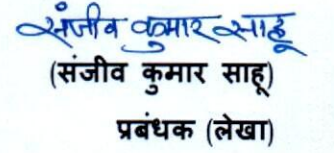 संजीव कुमार साहू
(संजीव कुमार साहू)
प्रबंधक (लेखा)